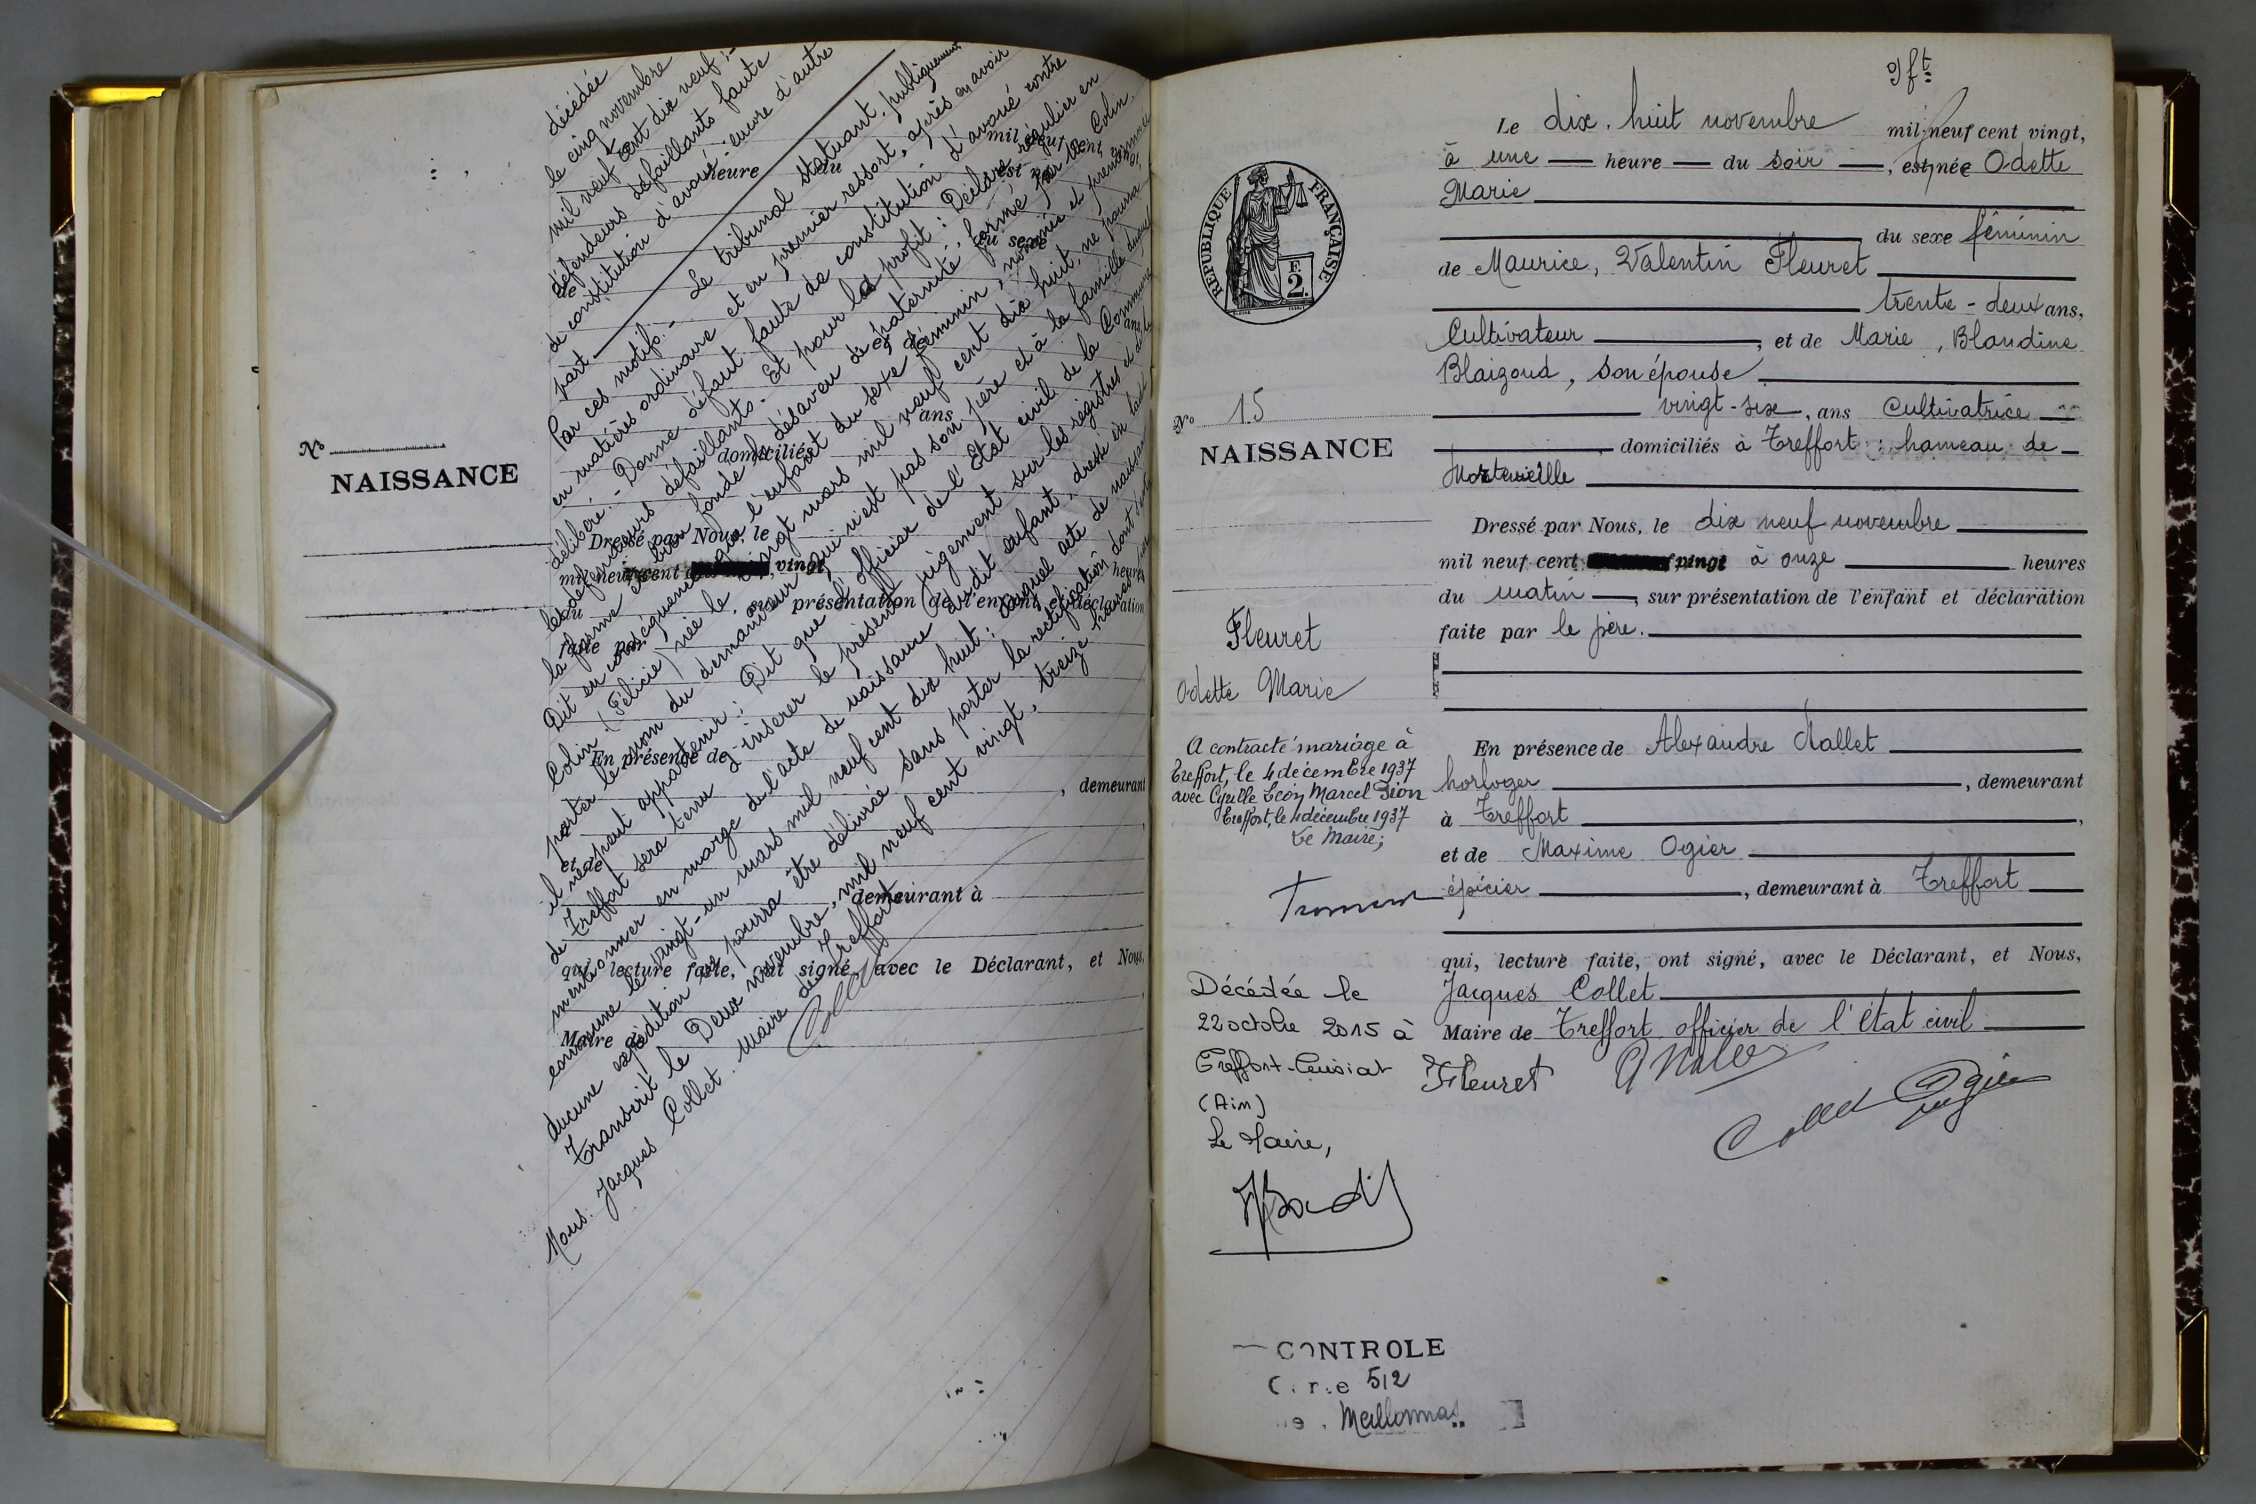 décédée
le cinq novembre
mil neuf cent dix neuf ;-
défendeurs défaillants faute
de constitution d'avoué - encore d'autre
part.
Par ces motifs. - Le tribunal statuant publiquement
en matières ordinaire et en premier ressort, après en avoir
délibéré. - Donne défaut faute de constitution d'avoué contre
les défendeurs défaillants - Et pour le profit : Déclare régulier en
la forme et bien fondé le désaveu de paternité, formé par Colin.
Dit en conséquence que l'enfant du sexe féminin, nommée et prénommée
Colin (Félicie) née le vingt mars mil neuf cent dix huit, ne pourra
porter le nom du demandeur qui n'est pas son père et à la famille duquel
il ne peut appartenir ; Dit que l'officier de l'Etat civil de la Commune
de Treffort sera tenu d'insérer le présent jugement sur les registres et de
mentionner en marge de l'acte de naissance dudit enfant, dressé en ladite
commune le vingt-un mars mil neuf cent dix huit ; duquel acte de naissance
aucune expédition ne pourra être délivrée sans porter la rectification dont
Transcrit le Deux novembre, mil neuf cent vingt, treize heures
Nous. Jacques Collet. Maire de Treffort
Collet
heure du
mil neuf cent
du sexe
de
et de
ans
domiciliés
No
NAISSANCE
Dressé par Nous, le
mil neuf cent vingt
heures
du , sur présentation de l'enfant et déclaration
faite par
En présence de
, demeurant
et de
, demeurant à
qui, lecture faite, ont signé, avec le Déclarant, et Nous,
Maire de
9 ft
Le dix. huit novembre mil neuf cent vingt,
à une heure du soir , est née Odette
Marie
du sexe féminin
de Maurice, Valentin Fleuret
trente - deux ans,
Cultivateur , et de Marie, Blandine
Blaizoud, son épouse
vingt-six , ans Cultivatrice
domiciliés à Treffort : hameau de
Montmerle
Dressé par Nous, le dix neuf novembre
mil neuf cent vingt à onze heures
du matin , sur présentation de l'enfant et déclaration
faite par le père.
En présence de Alexandre Nallet
horloger , demeurant
à Treffort ,
et de Maxime Ogier
épicier , demeurant à Treffort
qui, lecture faite, ont signé, avec le Déclarant, et Nous,
Jacques Collet
Maire de Treffort officier de l'état civil
Fleuret
Collet
Ogier
REPUBLIQUE FRANÇAISE
F.
2.
No 15
NAISSANCE
Fleuret
Odette Marie
A contracté mariage à
Treffort, le 4 décembre 1937
avec Cyrille Léon Marcel Pion
Treffort, le 4 décembre 1937
Le Maire ;
Décédée le
22 octobre 2015 à
Treffort-Cuisiat
(Ain)
Le Maire,
CONTROLE
512
Meillonnas